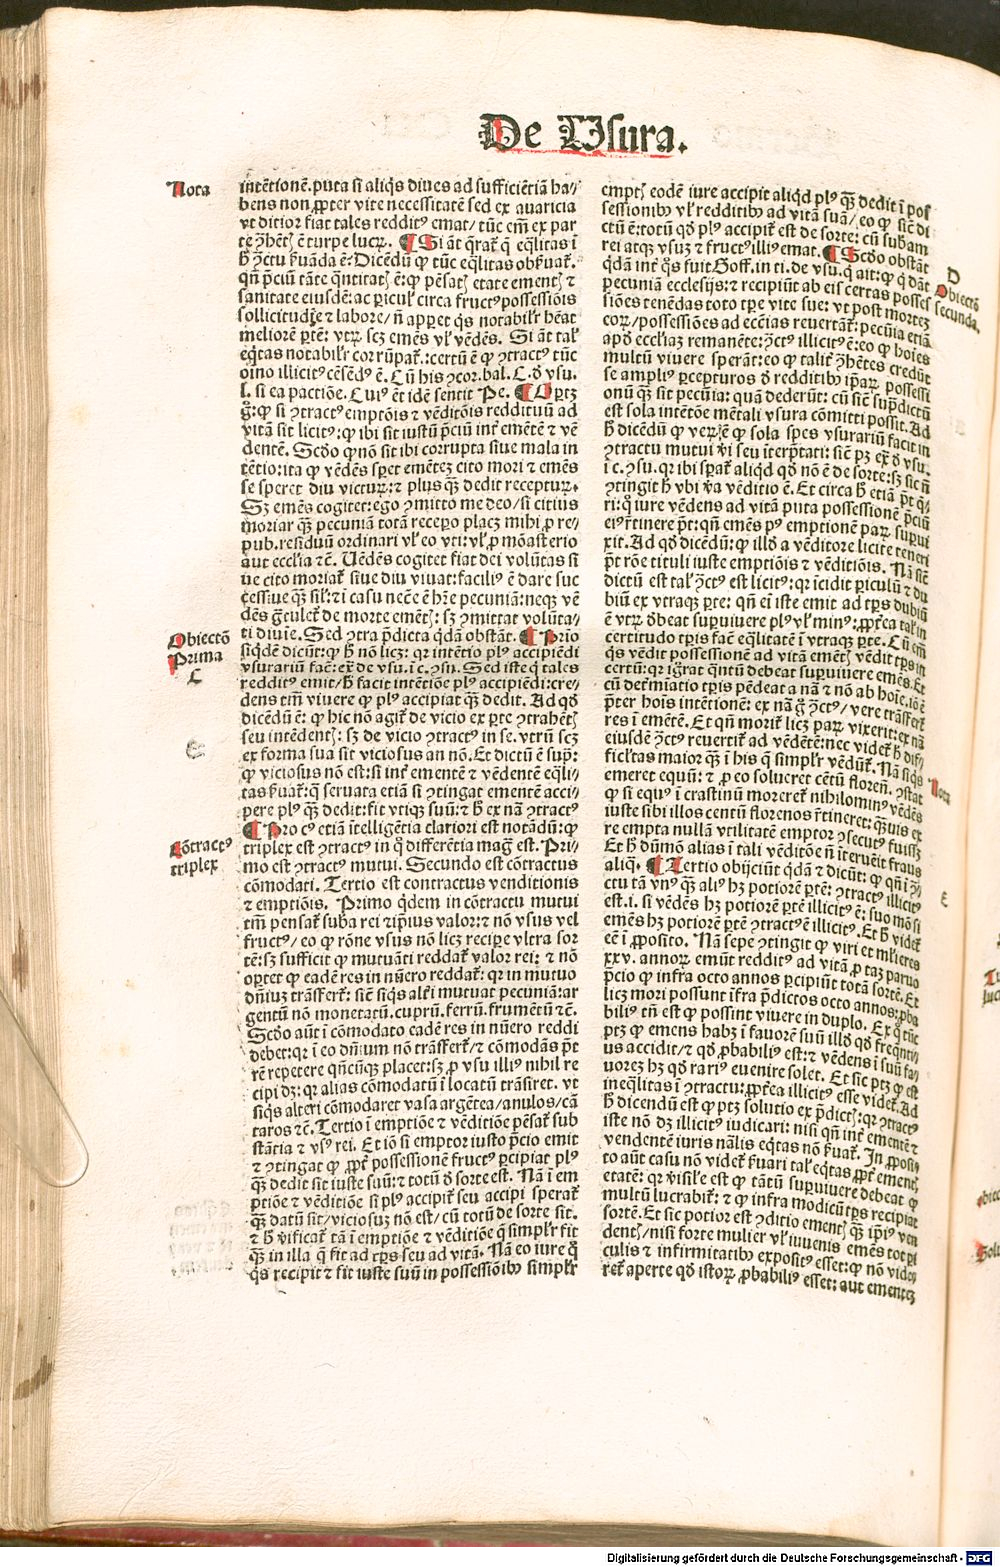 De Usura.
Nota
intētionē. puta si aliq̄s diues ad sufficiētiā ha/
bens non ꝓpter vite necessitatē sed ex auaricia
vt ditior fiat tales redditꝰ emat/ tūc em̄ ex par
te ꝯhētꝭ ē turpe lucrꝫ. ¶ Si āt q̄rat᷑ q̄ eq̄litas ī
h̄ ꝯctu ẜuāda ē. Dicēdū ꝙ tūc eq̄litas obẜuat᷑.
qn̄ p̄ciū tāte q̄ntitatꝭ ē: ꝙ pēsatꝭ etate ementꝭ ⁊
sanitate eiusdē: ac pericuł circa fructꝰ possessiōis
sollicitudīe ⁊ labore/ n̄ apꝑet q̄s notabilr̄ hēat
meliorē ꝑtē: vtrꝫ scꝫ emēs vł vēdēs. Si āt tał
eq̄tas notabilr̄ corrūpat᷑: certū ē ꝙ ꝯtractꝰ tūc
oīno illicitꝰ cēsēdꝰ ē. Cū his ꝯcor. bal. C. ď vsu.
l. si ea pactiōe. Cuiꝰ ēt idē sentit Pe. ¶ Oꝑtꝫ
g̊: ꝙ si ꝯtractꝰ emptōis ⁊ vēditōis reddituū ad
vitā sit licitꝰ: ꝙ ibi sit iustū p̄ciū int᷑ emētē ⁊ vē
dentē. Scďo ꝙ nō sit ibi corrupta siue mala in
tētio: ita ꝙ vēdēs sꝑet emētē cito mori ⁊ emēs
se speret diu victurꝫ: ⁊ plus q̄ꝫ dedit recepturꝫ.
Sꝫ emēs cogitet: ego ꝯmitto me deo/ si citius
moriar q̄ꝫ pecuniā totā recepo placꝫ mihi ꝓ re/
pub. residuū ordinari vł eo vti: vł ꝓ mōasterio
aut ecclīa ⁊c̄. Uēdēs cogitet fiat dei volūtas si
ue cito moriat᷑ siue diu viuat: faciliꝰ ē dare suc
cessiue q̄ꝫ siṁ: ⁊ i casu nec̄e ē hr̄e pecuniā: neqꝫ vē
dēs gꝛ̄tulet᷑ de morte emētꝭ: sꝫ ꝯmittat volūta/
ti diuīe. Sed ꝯtra p̄dicta q̄dā obstāt. ¶ Prīo
Obiectō
Prima
C
siq̄dē dicūt: ꝙ h̄ nō licꝫ: qꝛ intētio plꝰ accipiēdi
vsurariū fac̄: ex̄ de vsu. i c. ꝯsu. Sed iste q̄ tales
redditꝰ emit/ h̄ facit intētiōe plꝰ accipiēdi: cre/
dens tm̄ viuere ꝙ plꝰ accipiat q̄ꝫ dedit. Ad qď
dicēdū ē: ꝙ hic nō agit᷑ de vicio ex ꝑte ꝯtrahētꝭ
seu intēdentꝭ: sꝫ de vicio ꝯtractꝰ in se. vtrū scꝫ
ex forma sua sit viciosus an nō. Et dictū ē sup̄:
ꝙ viciosus nō est: si int᷑ ementē ⁊ vēdentē eq̄li/
tas ẜuat᷑: qua seruata etiā si ꝯtingat ementē acci/
pere plꝰ q̄ꝫ dedit: fit vtiqꝫ suū: ⁊ h̄ ex nā ꝯtractꝰ
¶ Pro cꝰ etiā ītelligētia clariori est notādū: ꝙ
Cōtractꝰ
triplex
triplex est ꝯtractꝰ in q̊ differētia mag̊ est. Pri/
mo est ꝯtractꝰ mutui. Secundo est cōtractus
cōmodati. Tertio est contractus venditionis
⁊ emptiōis. Primo q̄dem in cōtractu mutui
tm̄ pensat᷑ suba rei ⁊ ip̄ius valor: ⁊ nō vsus vel
fructꝰ/ eo ꝙ rōne vsus nō licꝫ recipe vltra sor
tē: sꝫ sufficit ꝙ mutuāti reddat᷑ valor rei: ⁊ nō
oꝑtet ꝙ eadē res in nūero reddat᷑: qꝛ in mutuo
dn̄iuꝫ trāsfert᷑: sic̄ siq̄s alt᷑i mutuat pecuniā: ar
gentū nō monetatū. cuprū. ferrū. frumētū ⁊c̄.
Scďo aūt i cōmodato eadē res in nūero reddi
debet: qꝛ i eo dn̄ium nō trāsfert᷑/ ⁊ cōmodās p̄t
rē repetere qn̄cūqꝫ placet: sꝫ ꝓ vsu illiꝰ nihil re
cipi dꝫ: qꝛ alias cōmodatū ī locatū trāsiret. vt
siq̄s alteri cōmodaret vasa argētea/ anulos/ cā
taros ⁊c̄. Tertio ī emptiōe ⁊ vēditiōe pēsat᷑ sub
stātia ⁊ vsꝰ rei. Et iō si emptor iusto p̄cio emit
⁊ ꝯtingat ꝙ ꝓpt᷑ possessionē fructꝰ ꝑcipiat plꝰ
q̄ꝫ dedit sit iuste suū: ⁊ totū ď sorte est. Nā ī em
ptiōe ⁊ vēditiōe si plꝰ accipit᷑ seu accipi sperat᷑
q̄ꝫ datū sit/ viciosuꝫ nō est/ cū totū de sorte sit.
⁊ h̄ v̄ificat᷑ tā ī emptiōe ⁊ vēditiōe q̄ simplr̄ fit
q̄ꝫ in illa q̄ fit ad tꝑs seu ad vitā. Nā eo iure q̊
q̄s recipit ⁊ fit iuste suū in possessiōibꝰ simplr̄
emptꝭ eodē iure accipit aliqď plꝰ q̄ꝫ dedit ī pos
sessionibꝰ vł redditibꝰ ad vitā suā/ eo ꝙ sic̄ di
ctū ē: totū qď plꝰ accipit᷑ est de sorte: cū subam
rei atqꝫ vsuꝫ ⁊ fructꝰ illiꝰ emat. ¶ Scďo obstāt
D
Obiectō
secunda.
q̄dā int᷑ q̄s fuit Goff. in ti. de vsu. q̄ ait: ꝙ q̄ dāt
pecuniā ecclesijs: ⁊ recipiūt ab eis certas posses
siōes tenēdas toto tꝑe vite sue: vt post morteꝫ
eorꝫ/ possessiōes ad ecc̄ias reuertāt᷑: pecūia etiā
apď eccl̄iaꝫ remanēte: ꝯctꝰ illicitꝰ ē: eo ꝙ hoīes
multū viuere sperāt: eo ꝙ talit᷑ ꝯhētes credūt
se ampliꝰ ꝑcepturos ď redditibꝰ ip̄arꝫ possessi
onū q̄ꝫ sit pecūia: quā dederūt: cū sic̄ sup̄dictū
est sola intētōe mētali vsura cōmitti possit. Ad
h̄ dicēdū ꝙ verꝫ ē ꝙ sola spes vsurariū facit in
ꝯtractu mutui v̄i seu īterp̄tati: sic̄ pꝫ ex̄ ď vsu.
i c. ꝯsu. qꝛ ibi sꝑat᷑ aliqď qď nō ē de sorte: sꝫ sic n̄
ꝯtingit h̄ vbi v̄a vēditio ē. Et circa h̄ etiā p̄t q̄/
ri: q̊ iure vēdens ad vitā puta possessionē p̄ciū
eiꝰ r̄tinere p̄t: qn̄ emēs pꝰ emptionē parꝫ suꝑui
xit. Ad qď dicēdū: ꝙ illď a vēditore licite teneri
p̄t rōe tituli iuste emptiōis ⁊ vēditiōis. Nā sic̄
dictū est tał ꝯctꝰ est licitꝰ: qꝛ īcidit ꝑiculū ⁊ du
biū ex vtraqꝫ ꝑte: qn̄ ei iste emit ad tꝑs dubiū
ē vtrꝫ ďbeat suꝑuiuere plꝰ vł minꝰ: ꝓpt᷑ea tał in
certitudo tꝑis fac̄ eq̄litatē ī vtraqꝫ ꝑte. Cū em̄
q̄s vēdit possessionē ad vitā emētꝭ vēdit tꝑs in
certū: qꝛ ig̊rat q̄ntū debeat suꝑuiuere emēs. Et
cū det᷑miatio tꝑis pēdeat a nā ⁊ nō ab hoīe. iō ē
p̄ter hoīs intētionē: ex nā g̊ ꝯctꝰ/ vere trāsfert᷑
res ī emētē. Et qn̄ morit᷑ licꝫ parꝫ vixerit: ex nā
eiusdē ꝯctꝰ reuertit᷑ ad vēdētē: nec videt᷑ h̄ dif/
ficłtas maior q̄ꝫ ī his q̄ simplr̄ vēdūt᷑. Nā siq̄s
emeret equū: ⁊ ꝓ eo solueret cētū floreñ. ꝯstat
Nota
ꝙ si equꝰ ī crastinū moreret᷑ nihilominꝰ vēdēs
iuste sibi illos centū florenos r̄tineret: q̄ꝫuis ex
re empta nullā vtilitatē emptor ꝯsecutꝰ fuissꝫ
Et h̄ dūmō alias ī tali vēditōe n̄ īteruēit fraus
aliq̄. ¶ Tertio obijciūt q̄dā ⁊ dicūt: ꝙ qn̄ i ꝯ/
E
ctu tā vnꝰ q̄ꝫ aliꝰ hꝫ potiorē ꝑtē: ꝯtractꝰ illicitꝰ
est. i. si vēdēs hꝫ potiorē ꝑtē illicitꝰ ē: suo mō si
emēs hꝫ potiorē ꝑtē ꝯtractꝰ ē illicitꝰ. Et h̄ videt᷑
eē ī ꝓposito. Nā sepe ꝯtingit ꝙ viri et mlieres
xxv. annorꝫ emūt redditꝰ ad vitā ꝓ taꝫ paruo
p̄cio ꝙ infra octo annos ꝑcipiūt totā sortē. Et
licꝫ mori possunt īfra p̄dictos octo annos: ꝓba
biliꝰ tn̄ est ꝙ possint viuere in duplo. Ex q̊ tūc
ptꝫ ꝙ emens habꝫ ī fauorē suū illď qď freq̄nti/
us accidit/ ⁊ qď ꝓbabiliꝰ est: ⁊ vēdens ī suū fa/
uorēꝫ hꝫ qď rariꝰ euenire solet. Et sic ptꝫ ꝙ est
ineq̄litas ī ꝯtractu: ꝓpt᷑ea illicitꝰ esse videt᷑. Ad
h̄ dicendū est ꝙ ptꝫ solutio ex p̄dictꝭ: qꝛ ꝯtractꝰ
iste nō dꝫ illicitꝰ iudicari: nisi qn̄ int᷑ ementē ⁊
vendentē iuris nālis eq̄tas nō ẜuat᷑. In ꝓposi/
to aūt casu nō videt᷑ ẜuari tał eq̄tas ꝓpt᷑ ementꝭ
etatē: qꝛ v̄isil̄e est ꝙ tātū suꝑuiuere debeat ꝙ
multū lucrabit᷑: ⁊ ꝙ infra modicū tꝑs recipiat
sortē. Et sic potior est ꝯditio ementꝭ q̄ꝫ ip̄iꝰ ven
dentꝭ/ nisi forte mulier vł iuuenis emēs tot ꝑi
culis ⁊ infirmitatibꝰ expositꝰ esset: ꝙ nō vide/
ret᷑ aperte qď istorꝫ ꝓbabiliꝰ esset: aut ementeꝫ
Digitalisierung gefördert durch die Deutsche Forschungsgemeinschaft - DFG